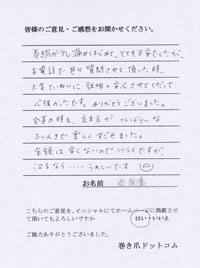 皆様のご意見・ご感想をお聞かせください。
巻き爪が少し痛みはじめて、とても不安でしたが、
お電話で色々質問させて頂いた時、
とてもていねいに説明して安心させてくださって
心強かったです。ありがとうございました。
先生の時も、先生方がフレンドリーな
ふんいきで楽しくすごせました。
金額は安くないのでツライですが、
治るなら……うれしいです
お名前
こちらのご意見を、イニシャルにてホームページに掲載させ
て頂いてもよろしいですか はい・いいえ
ご協力ありがとうございました。
巻き爪ドットコム